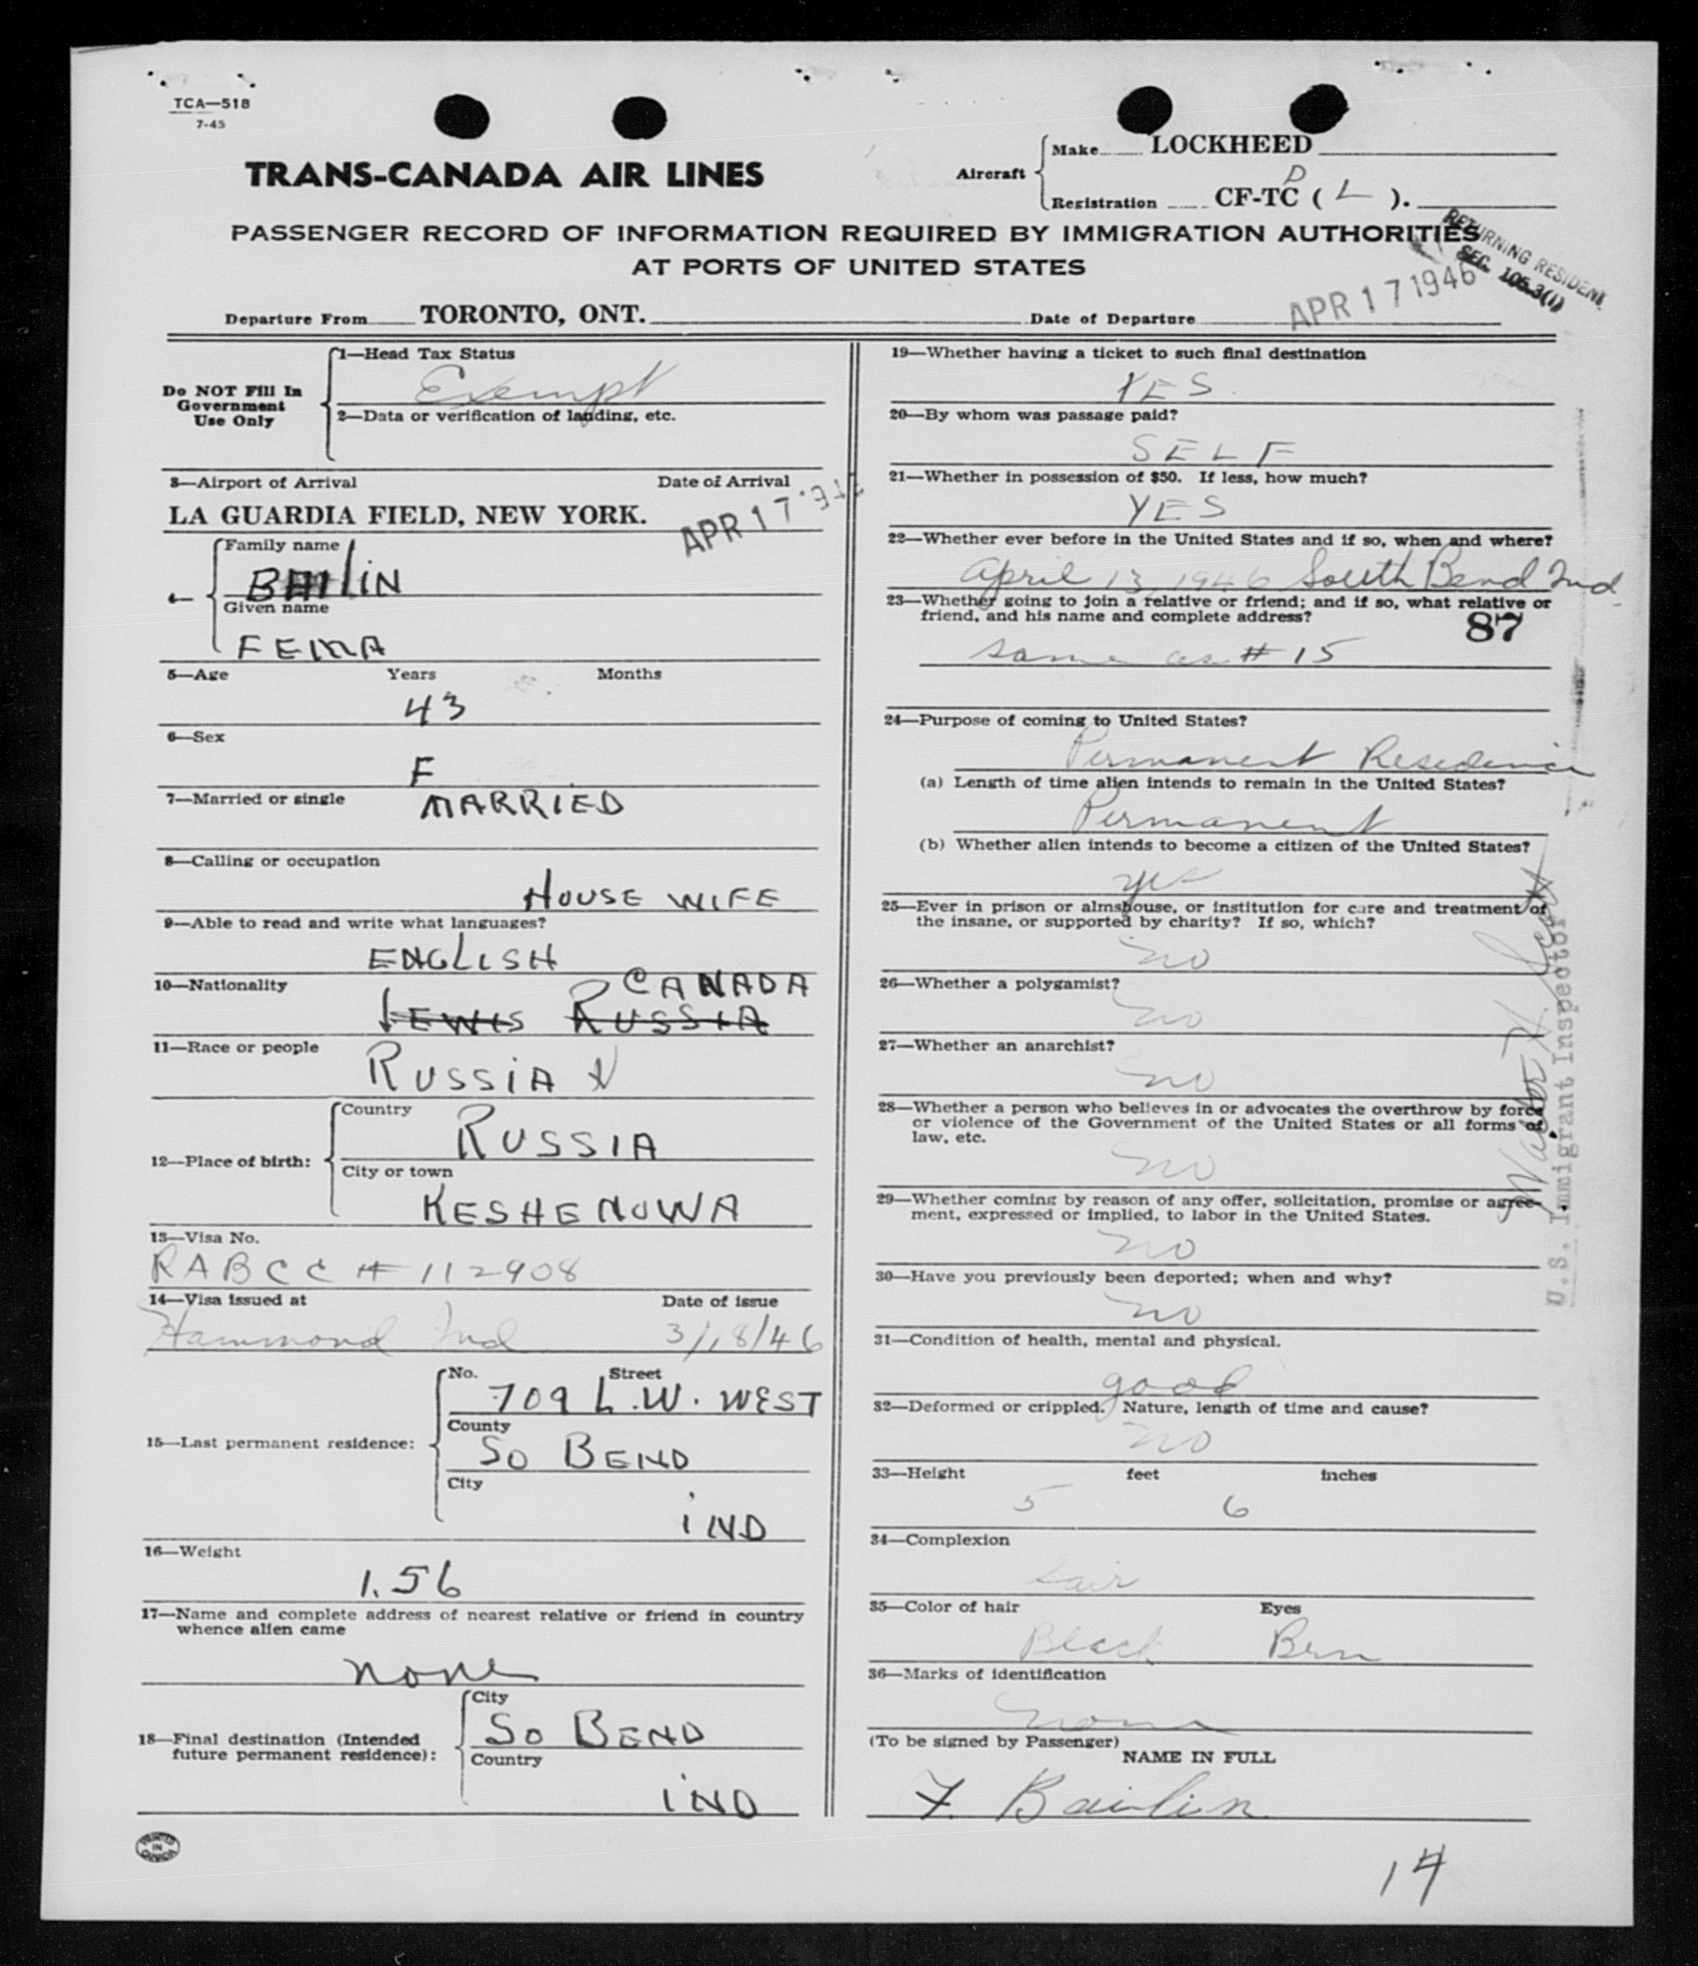 TCA—518
7-45
TRANS-CANADA AIR LINES
Aircraft
Make LOCKHEED
Registration CF-TC ( L ).
D
PASSENGER RECORD OF INFORMATION REQUIRED BY IMMIGRATION AUTHORITIES
AT PORTS OF UNITED STATES
RETURNING RESIDENT
SEC. 105.3(1)
Departure From TORONTO, ONT. Date of Departure APR 17 1946
Do NOT Fill In
Government
Use Only
1—Head Tax Status
Exempt
2—Data or verification of landing, etc.
3—Airport of Arrival Date of Arrival
LA GUARDIA FIELD, NEW YORK. APR 17 1946
4—
Family name
BAILIN
Given name
FEMA
5—Age Years Months
43
6—Sex
F
7—Married or single
MARRIED
8—Calling or occupation
HOUSE WIFE
9—Able to read and write what languages?
ENGLISH
10—Nationality
CANADA
JEWIS RUSSIA
11—Race or people
RUSSIA N
12—Place of birth:
Country
RUSSIA
City or town
KESHENOWA
13—Visa No.
RABCC # 112908
14—Visa issued at Date of issue
Hammond Ind 3/18/46
15—Last permanent residence:
No. Street
709 L.W. WEST
County
SO BEND
City
IND
16—Weight
1.56
17—Name and complete address of nearest relative or friend in country
whence alien came
none
18—Final destination (Intended
future permanent residence):
City
SO BEND
Country
IND
PRINTED
IN
CANADA
19—Whether having a ticket to such final destination
YES
20—By whom was passage paid?
SELF
21—Whether in possession of $50. If less, how much?
YES
22—Whether ever before in the United States and if so, when and where?
April 13, 1946 South Bend Ind
23—Whether going to join a relative or friend; and if so, what relative or
friend, and his name and complete address?
87
same as # 15
24—Purpose of coming to United States?
Permanent Residence
(a) Length of time alien intends to remain in the United States?
Permanent
(b) Whether alien intends to become a citizen of the United States?
yes
25—Ever in prison or almshouse, or institution for care and treatment of
the insane, or supported by charity? If so, which?
no
26—Whether a polygamist?
no
27—Whether an anarchist?
no
28—Whether a person who believes in or advocates the overthrow by force
or violence of the Government of the United States or all forms of
law, etc.
no
29—Whether coming by reason of any offer, solicitation, promise or agree-
ment, expressed or implied, to labor in the United States.
no
30—Have you previously been deported; when and why?
no
31—Condition of health, mental and physical.
good
32—Deformed or crippled. Nature, length of time and cause?
no
33—Height feet inches
5 6
34—Complexion
fair
35—Color of hair Eyes
Black Brn
36—Marks of identification
none
(To be signed by Passenger)
NAME IN FULL
F. Bailin
14
Walter H.
U.S. Immigrant Inspector